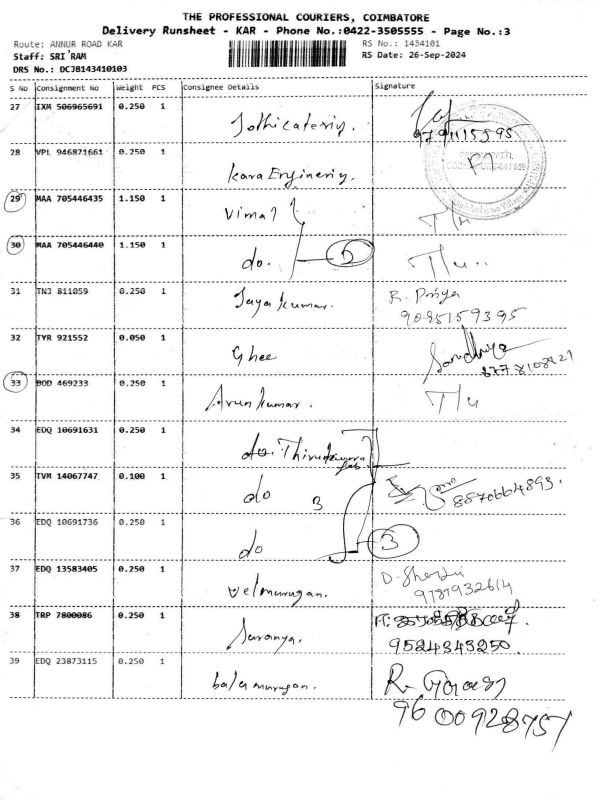 THE PROFESSIONAL COURIERS, COIMBATORE
Delivery Runsheet - KAR - Phone No.:0422-3505555 - Page No.:3
Route: ANNUR ROAD KAR RS No.: 1434101
Staff: SRI RAM RS Date: 26-Sep-2024
DRS No.: DCJB143410103
S No Consignment No Weight PCS Consignee Details Signature
27 IXM 506965691 0.250 1 Jothicatering.
9791115595
28 VPL 946871661 0.250 1 Kara Enginering.
29 MAA 705446435 1.150 1 Vimal
30 MAA 705446440 1.150 1 do.
31 TNJ 811059 0.250 1 Jayakumar. R. Priya
9095159395
32 TYR 921552 0.050 1 Ghee Sandhiya
8778108221
33 BOD 469233 0.250 1 Arunkumar.
34 EDQ 10691631 0.250 1 do.
35 TVM 14067747 0.100 1 do 3 8870664893.
36 EDQ 10691736 0.250 1 do 3
37 EDQ 13583405 0.250 1 Velmurugan.
9787932614
38 TRP 7800086 0.250 1 Saranya.
9524343250
39 EDQ 23873115 0.250 1 balamurugan.
9600928757